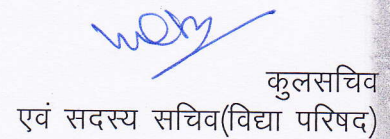 कुलसचिव
एवं सदस्य सचिव(विद्या परिषद)